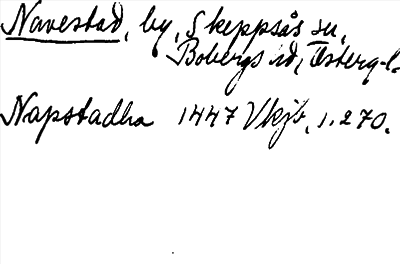 Navestad, by, Skeppsås sn,
Bobergs hd, Österg-l.
Napstadha 1447 Vkjb, 1.270.